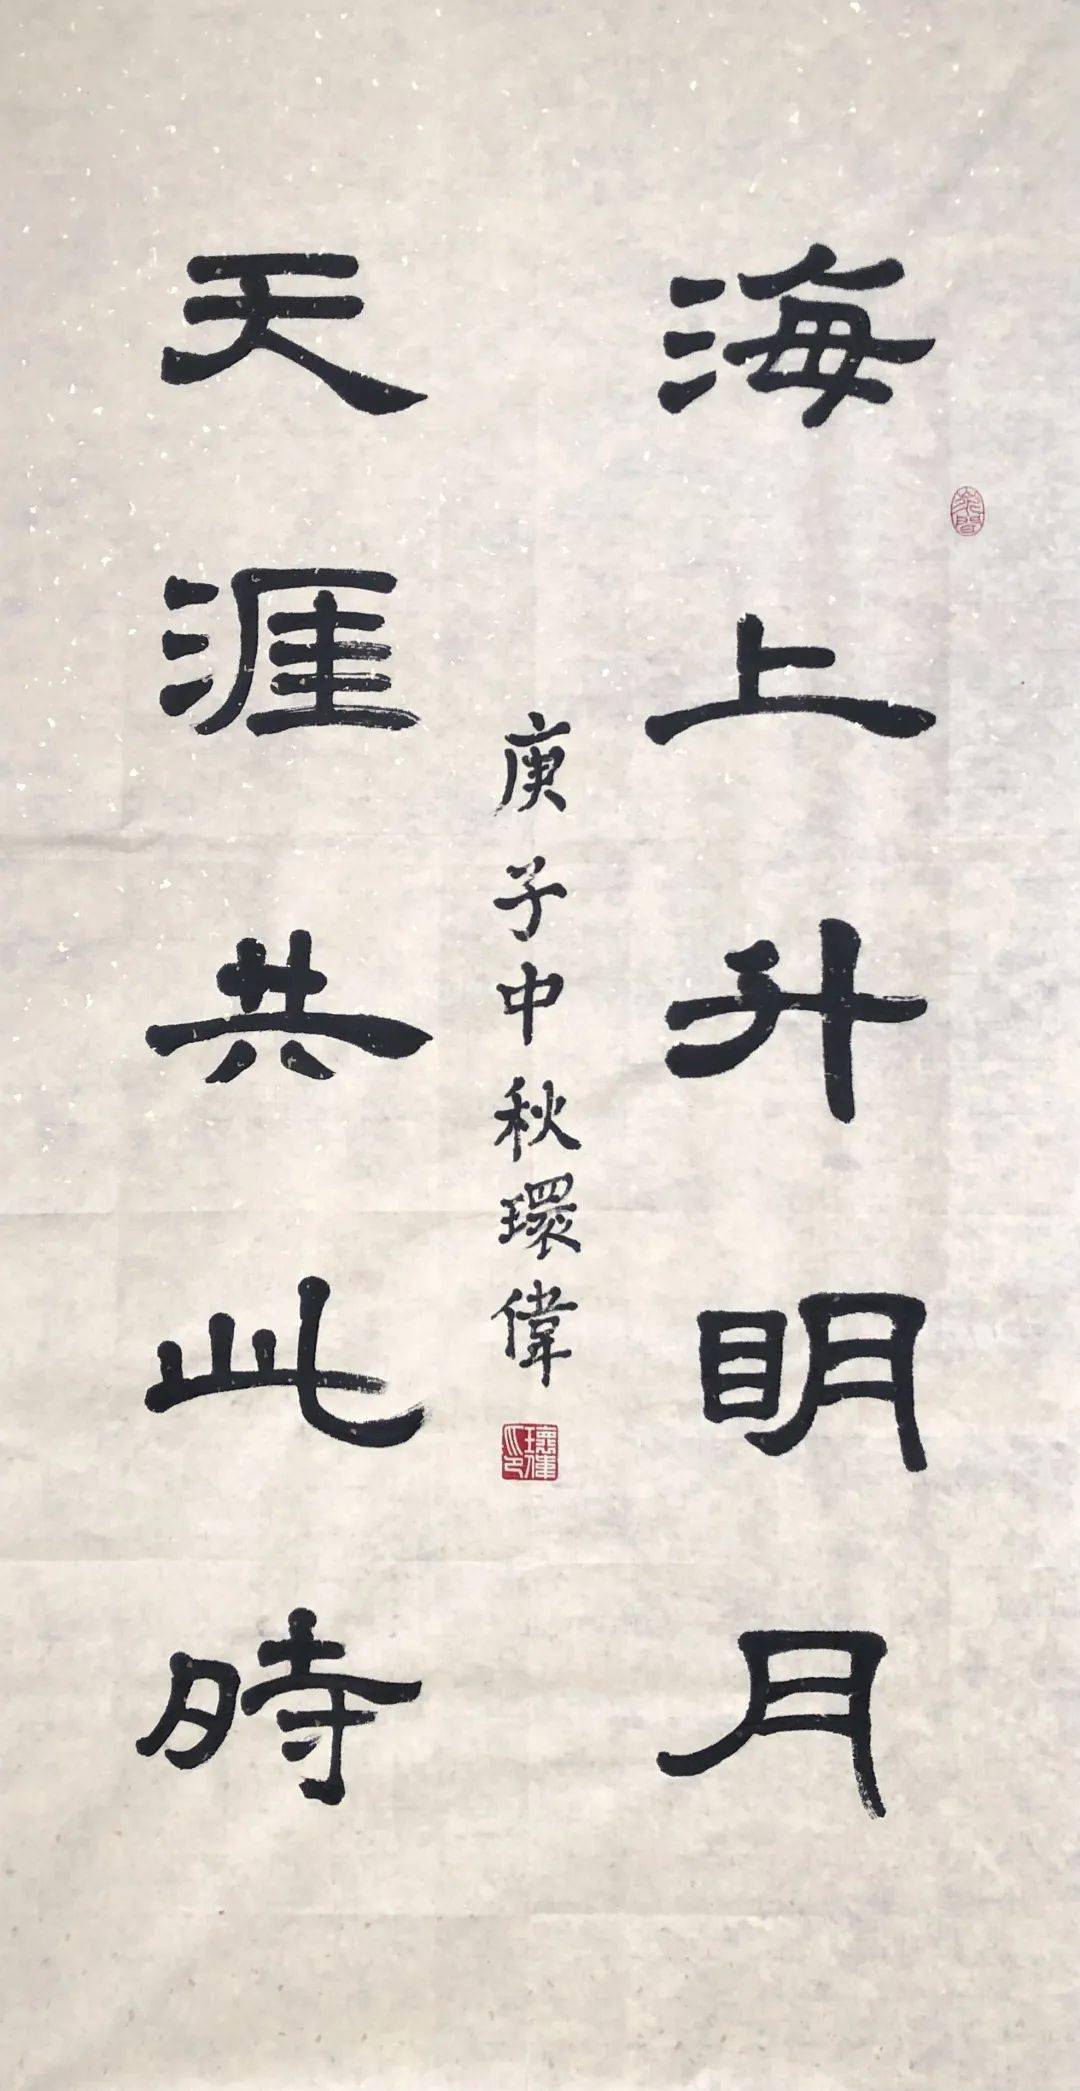 海上升明月
天涯共此時
庚子中秋環偉
環偉之印